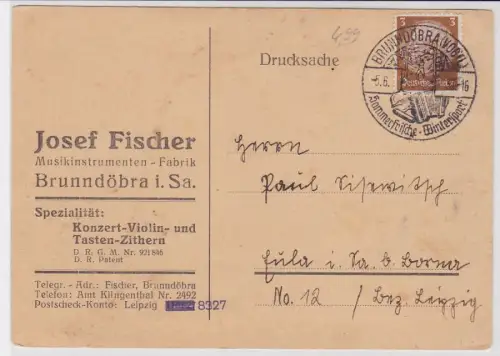 499
3
BRUNNDÖBRA (VOGTL)
Deutsches Reich
-5.6.
-16
Sommerfrische - Wintersport
Drucksache
Josef Fischer
Musikinstrumenten - Fabrik
Brunndöbra i. Sa.
Spezialität:
Konzert-Violin- und
Tasten-Zithern
D. R. G. M. Nr. 921 846
D. R. Patent
Telegr. - Adr.: Fischer, Brunndöbra
Telefon: Amt Klingenthal Nr. 2492
Postscheck-Konto: Leipzig 8327
Herrn
Paul Sisewitsch
Eula i. Sa. b. Borna
No. 12 / Bez. Leipzig